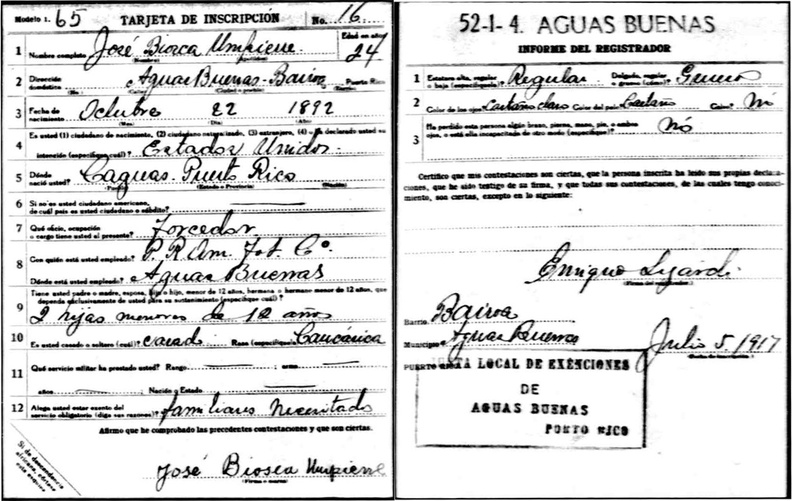 Modelo 1. 65 TARJETA DE INSCRIPCIÓN No. 16
1 José Biosca Umpierre Edad en años 24
Nombre completo
2 Dirección doméstica Aguas Buenas - Bairoa Puerto Rico
3 Fecha de nacimiento Octubre 22 1892
(Día) (Año)
4 Es usted (1) ciudadano de nacimiento, (2) ciudadano naturalizado, (3) extranjero, (4) ha declarado usted su
intención (especifique cuál)? Estados Unidos.
5 Dónde nació usted? Caguas. Puerto Rico
(Estado o Provincia) (Nación)
6 Si no es usted ciudadano americano,
de cuál país es usted ciudadano o súbdito?
7 Qué oficio, ocupación
o cargo tiene usted al presente? Torcedor.
8 Con quién está usted empleado? P. R. Am. Tob. Co.
Dónde está usted empleado? Aguas Buenas
9 Tiene usted padre o madre, esposa, hijo o hija, menor de 12 años, hermana o hermano menor de 12 años, que
dependa exclusivamente de usted para su sostenimiento (especifique cuál)?
2 hijas menores de 12 años
10 Es usted casado o soltero (cuál)? casado Raza (especifique cuál)? Caucásica
11 Qué servicio militar ha prestado usted? Rango arma
años Nación o Estado
12 Alega usted estar exento del
servicio obligatorio (diga sus razones)? familiares necesitado
Afirmo que he comprobado las precedentes contestaciones y que son ciertas.
José Biosca Umpierre
(Firma o marca)
Si de descendencia
africana, córtese
esta esquina
52-1-4. AGUAS BUENAS
INFORME DEL REGISTRADOR
1 Estatura alta, regular
o baja (especifíquela)? Regular Delgado, regular
o grueso (cómo)? Grueso
2 Color de los ojos Castaño claro Color del pelo Castaño Calvo? No
3 Ha perdido esta persona algún brazo, pierna, mano, pie, o ambos
ojos, o está ella incapacitada de otro modo (especifique)? Nó
Certifico que mis contestaciones son ciertas, que la persona inscrita ha leído sus propias declara-
ciones, que he sido testigo de su firma, y que todas sus contestaciones, de las cuales tengo conoci-
miento, son ciertas, excepto en lo siguiente:
Enrique
Barrio Bairoa
Municipio Aguas Buenas Julio 5, 1917
PUERTO RICO (Fecha de inscripción.)
JUNTA LOCAL DE EXENCIONES
DE
AGUAS BUENAS
PUERTO RICO